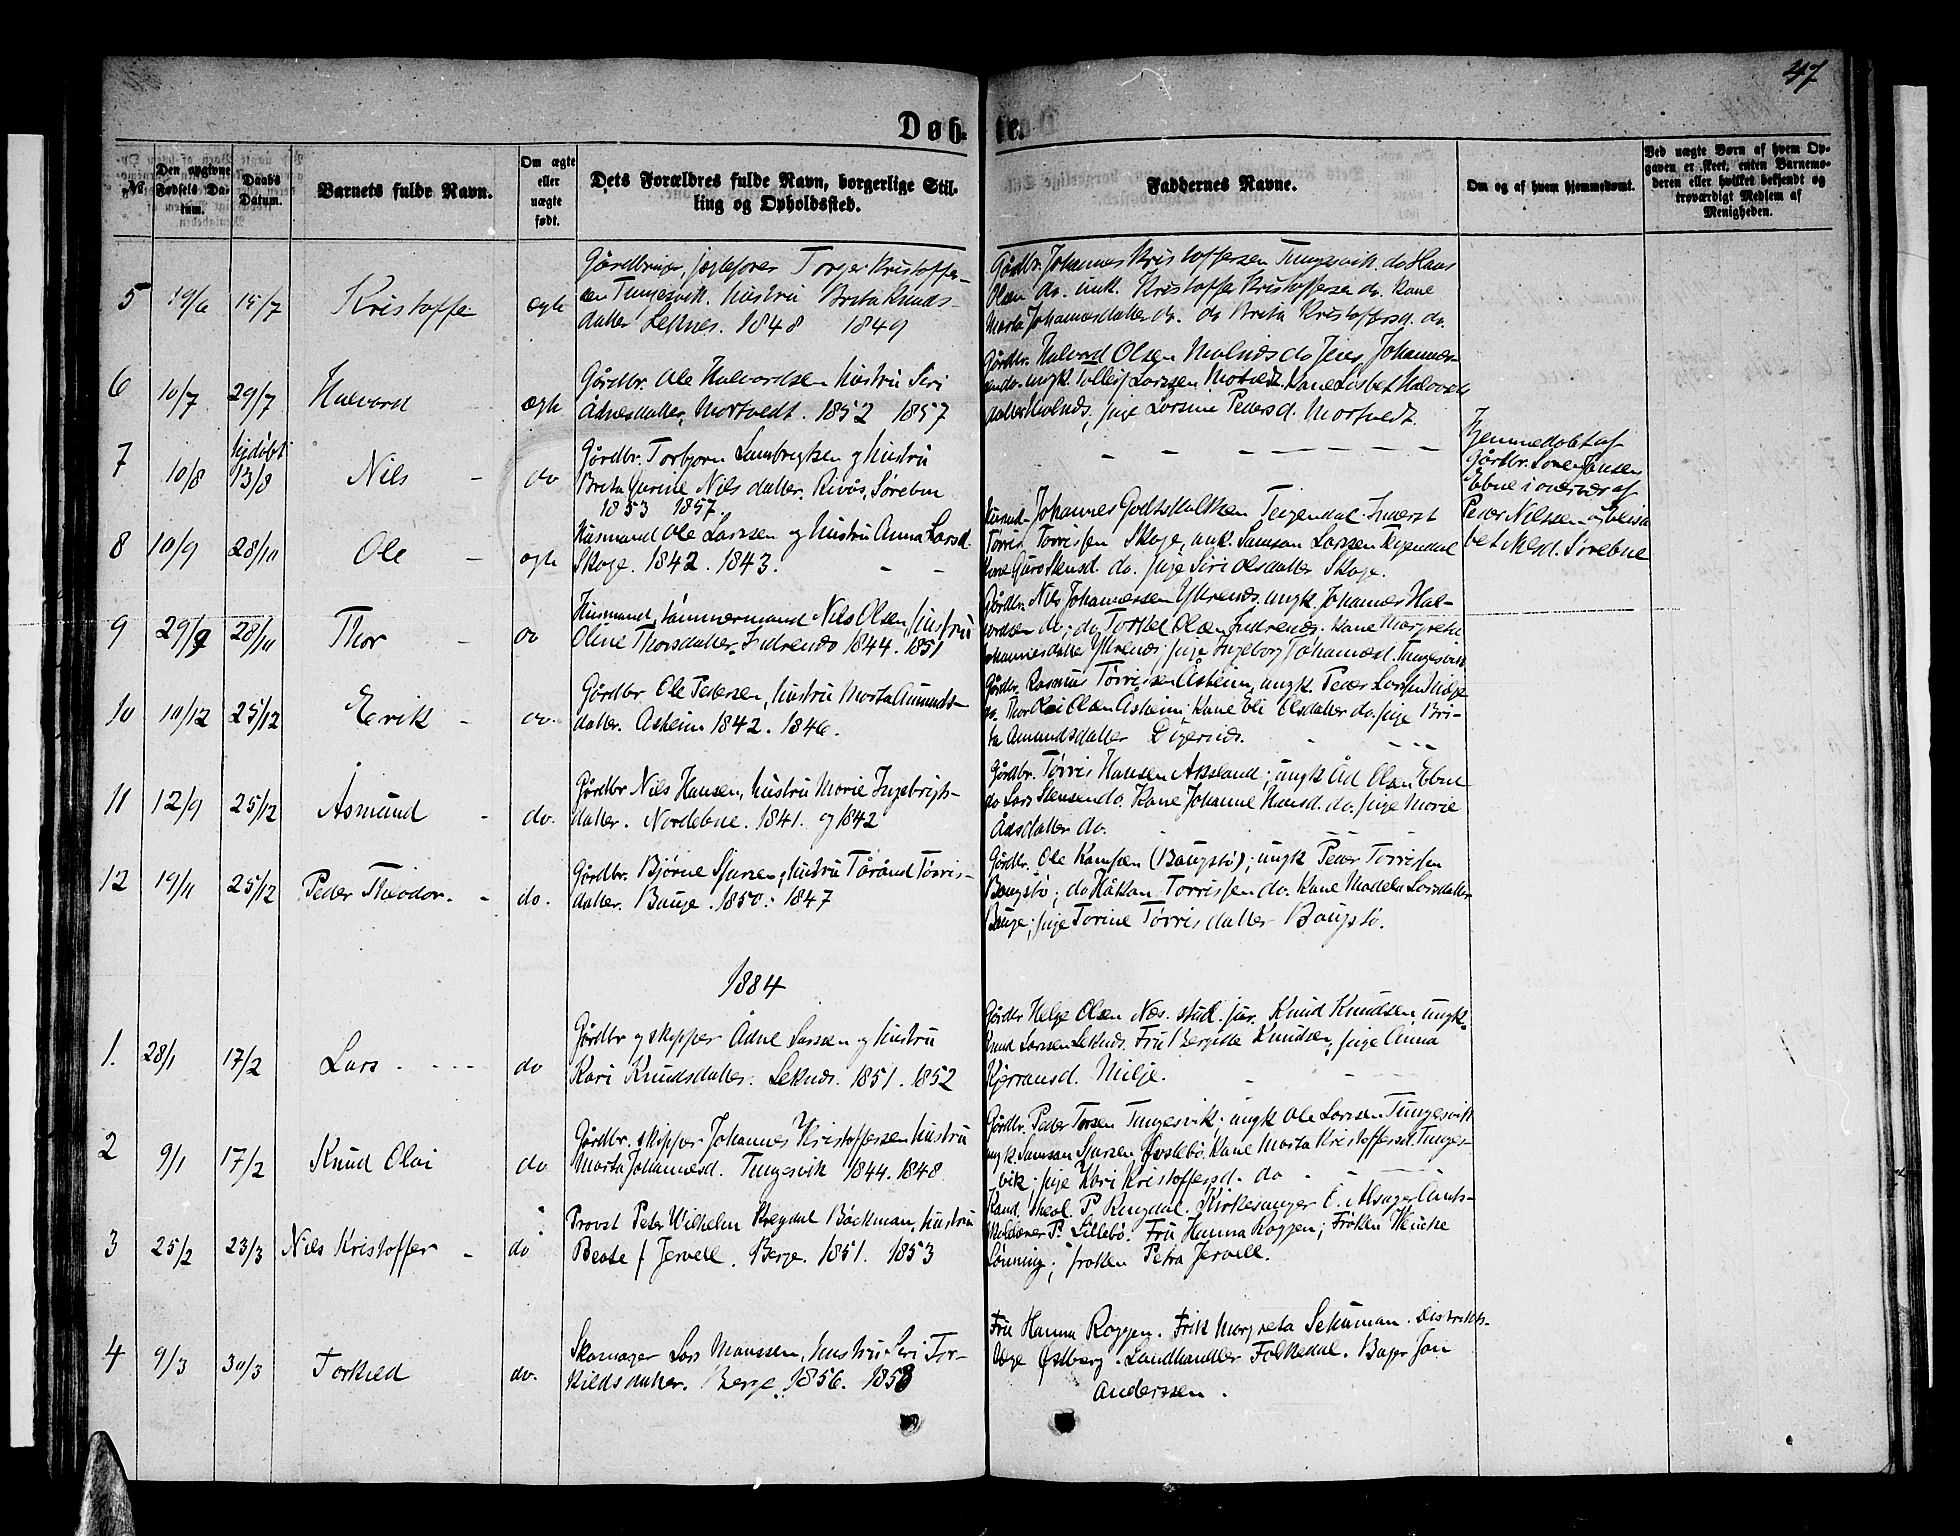 47
Døb-
te.
No.
Den opgivne Fødsels Datum.
Daabs Datum.
Barnets fulde Navn.
Om ægte eller uægte født.
Dets Forældres fulde Navn, borgerlige Stilling og Opholdssted.
Faddernes Navne.
Om og af hvem hjemmedømt.
Ved uægte Børn af hvem Opgaven er skeet, enten Barnemoderen eller hvilket bekjendt og troværdigt Medlem af Menigheden.
5 19/6 15/7 Kristoffer ægte
Gårdbruger, Torger Kristoffer-
sen Tungesvik. hustru Brita Knuds-
datter Leknes. 1848 1849
Gårdbr. Johannes Kristoffersen Tungesvik. do Hans
Olsen do. unk. Kristoffer Kristoffersen do. Kone
Marta Johannesdatter do. do Brita Kristoffersd. do.
6 10/7 29/7 Halvard ægte
Gårdbr. Ole Halvordsen hustru Siri
Ådnesdatter. Mortvedt. 1852 1857
Gårdbr. Halvard Olsen Molnes do Jens Johannes-
sen do. ungk. Tolleif Larssen Motvedt. Kone Lisbet Halvords
datter Molnes, pige Lorsine Pedersd. Mortvedt.
7 10/8 hjdøbt 13/8 Nils - do
Gårdbr. Torbjørn Lambregtsen og hustru
Brita Gurine Nilsdatter. Rivås, Sørebne
1853 1857.
- - - - - - -
Hjemmedøbt af
Gårdbr. Sone Hansen
Ebne i overvær af
Peder Nilssen og Elisa
bet Nilsd. Sørebne
8 10/9 28/10 Ole - ægte
Husmand Ole Larssen og hustru Anna Larsd.
Skoge. 1842. 1843. - -
Husmd. Johannes Godtskalksen Teigendal.
Tørris Tørrissen Skoge, unk. Samson Larssen Teigendal
Kone Guro Stensd. do. pige Siri Olsdatter Skoge.
9 29/9 28/10 Thor - do
Husmand, tømmermand Nils Olsen, hustru
Oline Thorsdatter. Indrenes 1844. 1851
Gårdbr. Nils Johannessen Yttrenes. ungk. Johannes Hal-
vordsen do; do Torkel Olsen Indrenes. Kone Margreta
Johannesdatter Yttrenes; pige Ingeborg Johannesd. Tungesvik
10 10/12 25/12 Eerik - do.
Gårdbr Ole Pedersen, hustru Marta Amunds-
datter. Asheim 1842. 1846.
Gårdbr. Rasmus Tørrissen Åsheim, ungk. Peder Larssen Milje
do. Thor Olai Olsen Åsheim; Kone Eli Elsdatter do. pige Bri-
ta Amundsdatter Digernes. - - -
11 12/9 25/12 Åsmund - do.
Gårdbr Nils Hansen, hustru Marie Ingebrigts-
datter. Nordebne. 1841. og 1842
Gårdbr. Tørris Hansen Aksland; ungk Åd Olsen Ebne
do Lars Stensen do. Kone Johanne Hansd. do. pige Marie
Ådsdatter do.
12 19/11 25/12 Peder Theodor. - do.
Gårdbr. Bjørne Sjursen, hustru Tårånd Tørris-
datter. Bauge. 1850. 1847
Gårdbr. Ole Hansen (Baugstø); ungk Peder Tørrissen
Baugstø; do Håkon Tørrissen do. Kone Madela Larsdatter
Bauge; pige Torine Tørrisdatter Baugstø.
1884
1. 28/1 17/2 Lars - - - do
Gårdbr og skipper Ådne Larssen og hustru
Kari Knudsdatter. Leknes. 1851. 1852
Gårdbr Helge Olsen Næs. stud. jur. Knud Knudsen ungk.
Knud Larssen Leknes. Fru Bergitte Knudsen, pige Anna
Kjerransd. Milje. - - -
2 9/1 17/2 Knud Olai do
Gårdbr. skipper Johannes Kristoffersen hustru
Marta Johannesd. Tungesvik 1844. 1848.
Gårdbr. Peder Torsen Tungesvik; ungk Ole Larssen Tungesvik
ungk Samson Sjursen Øvslebø. Kone Marta Kristoffersd. Tunges-
vik; pige Kari Kristoffersd. do - -
3 25/2 23/3 Nils Kristoffer - do
Provst Peter Wilhelm Kreydal Bøckman, hustru
Beate f. Jervell. Berge. 1851. 1853
Kand. theol. P. Ringdal. Kirkesanger O. Alsager Amts-
skolelærer P. Lillebø. Fru Hanna Roggen; Frøken
Lønning; frøken Petra Jervell.
4 9/3 30/3 Torkild do.
Skomager Lars Monssen, hustru Siri Tor-
kildsdatter. Berge. 1856. 1858
Fru Hanna Roggen. Frk Margreta Schuman. Distrikts-
læge Østberg. Landhandler Folkedal. Bager Jon
Anderssen.